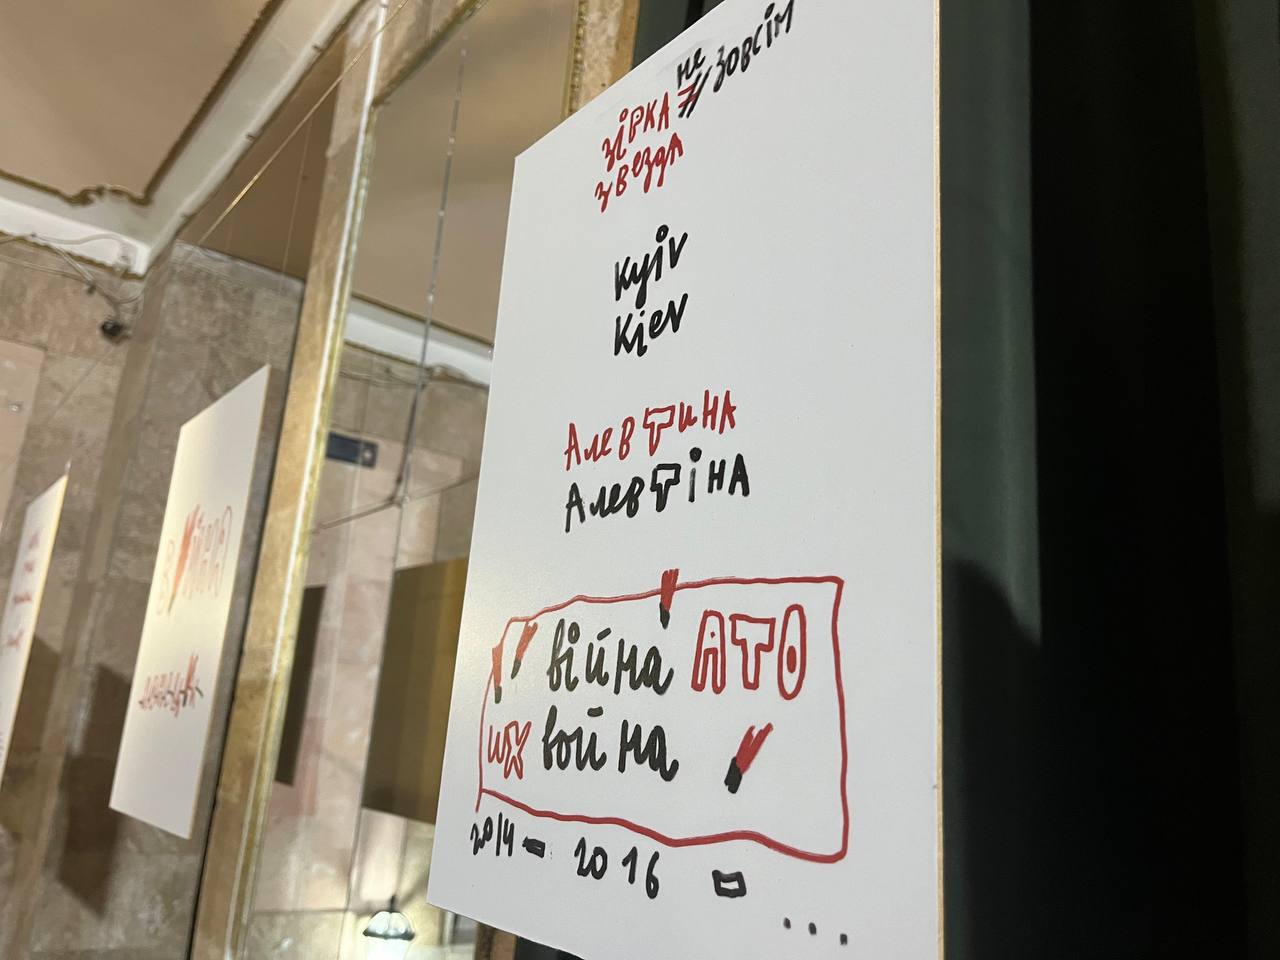 не зовсім
зірка
звезда
Kyiv
Kiev
Алевтина
Алевтіна
війна АТО
их война
2014 - 2016 - ...